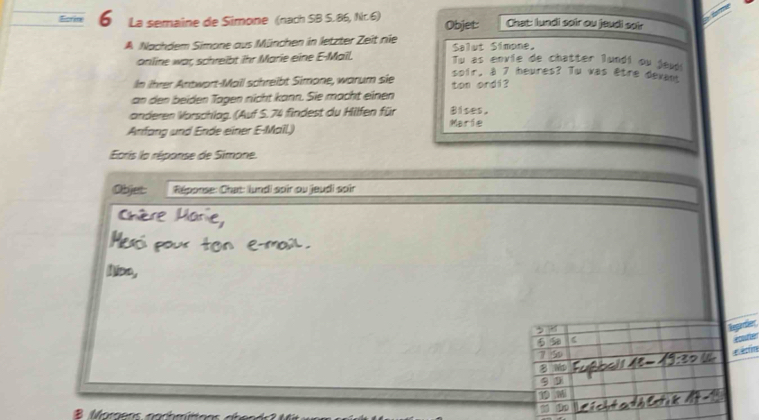 Écrire
6 La semaine de Simone (nach SB S. 86, Nr. 6)
A Nachdem Simone aus München in letzter Zeit nie
online war, schreibt ihr Marie eine E-Mail.
In ihrer Antwort-Mail schreibt Simone, warum sie
an den beiden Tagen nicht kann. Sie macht einen
anderen Vorschlag. (Auf S. 74 findest du Hilfen für
Anfang und Ende einer E-Mail.)
Écris la réponse de Simone.
Objet: Chat: lundi soir ou jeudi soir
Salut Simone,
Tu as envie de chatter lundi ou jeudi
soir, à 7 heures? Tu vas être devant
ton ordi?
Bises,
Marie
Objet: Réponse: Chat: lundi soir ou jeudi soir
Chère Marie,
Merci pour ton e-mail.
Non,
6 Sa
7 So
8 Mo Fußball 18-19:30 U
9 Di
10 Mi
11 Do Leichtathletik 17-1
Regarder,
écouter
et écrire